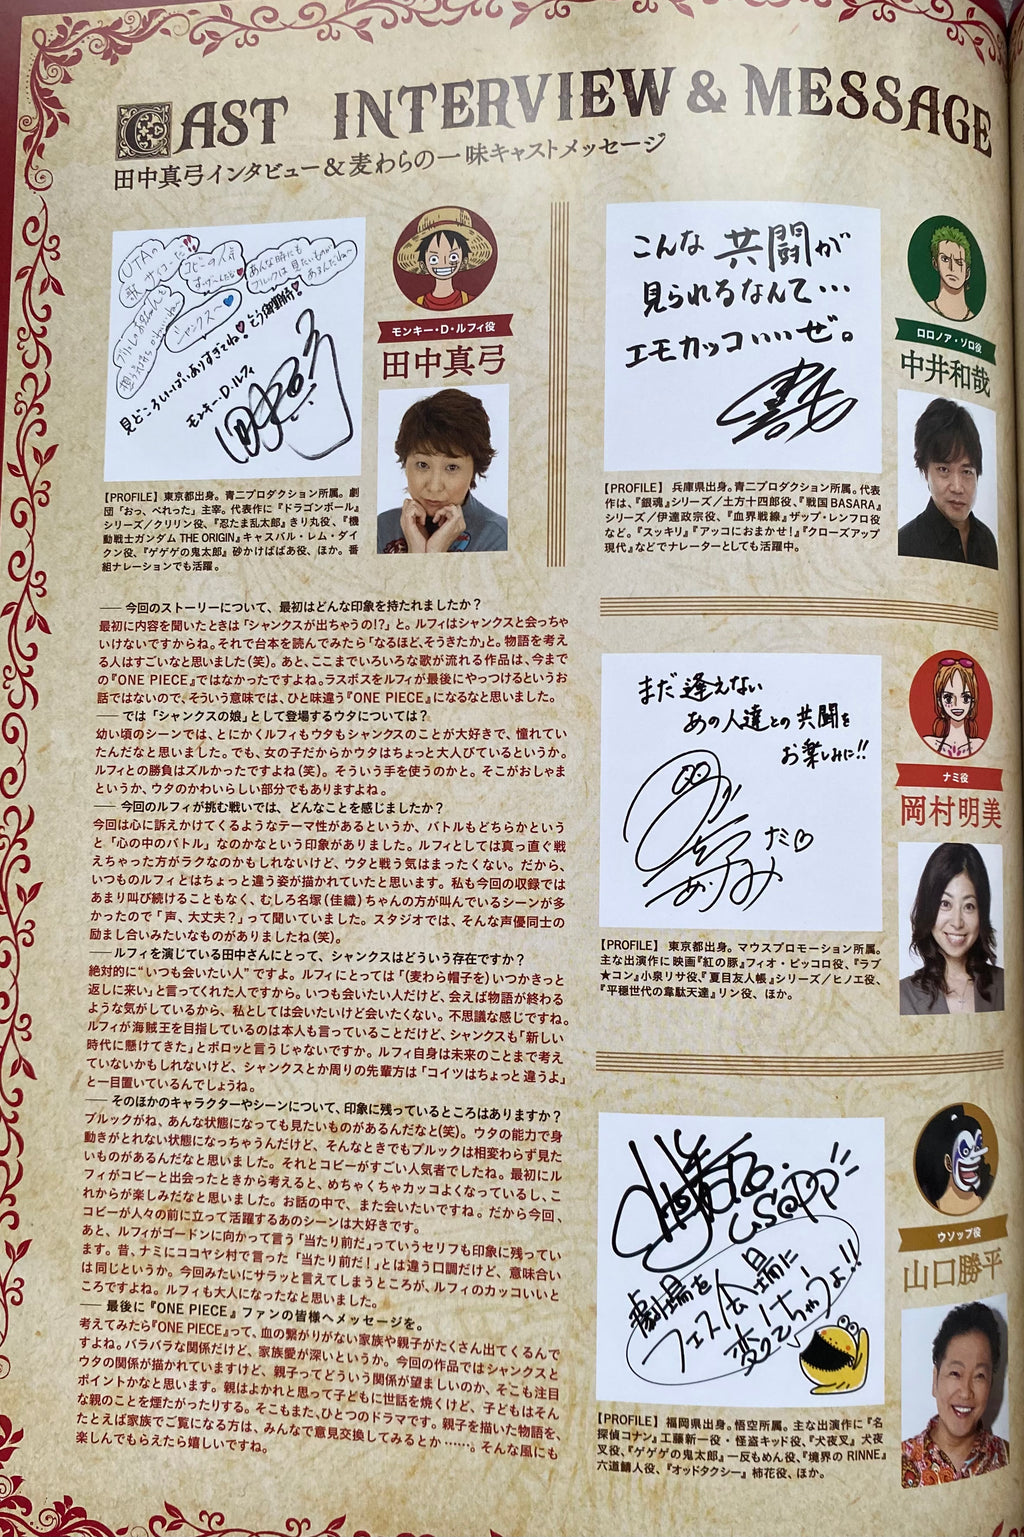 CAST INTERVIEW & MESSAGE
田中真弓インタビュー＆麦わらの一味キャストメッセージ
UTAの
歌サイコーだ
コビーの人気
すっげ〜んだな
あんな時にも
ブルックは見たいものが
あるんだね〜
シャンクス〜
見どころいっぱいありすぎてね!もう御期待!
モンキー・D・ルフィ
田中真弓
モンキー・D・ルフィ役
田中真弓
【PROFILE】東京都出身。青二プロダクション所属。劇
団「おっ、ぺれった」主宰。代表作に『ドラゴンボール』
シリーズ／クリリン役、『忍たま乱太郎』きり丸役、『機
動戦士ガンダム THE ORIGIN』キャスバル・レム・ダイ
クン役、『ゲゲゲの鬼太郎』砂かけばばあ役、ほか。番
組ナレーションでも活躍。
── 今回のストーリーについて、最初はどんな印象を持たれましたか？
最初に内容を聞いたときは「シャンクスが出ちゃうの!?」と。ルフィはシャンクスと会っちゃ
いけないですからね。それで台本を読んでみたら「なるほど、そうきたか」と。物語を考え
る人はすごいなと思いました（笑）。あと、ここまでいろいろな歌が流れる作品は、今まで
の『ONE PIECE』ではなかったですよね。ラスボスをルフィが最後にやっつけるというお
話ではないので、そういう意味では、ひと味違う『ONE PIECE』になるなと思いました。
── では「シャンクスの娘」として登場するウタについては？
幼い頃のシーンでは、とにかくルフィもウタもシャンクスのことが大好きで、憧れてい
たんだなと思いました。でも、女の子だからかウタはちょっと大人びているというか。
ルフィとの勝負はズルかったですよね（笑）。そういう手を使うのかと。そこがおしゃま
というか、ウタのかわいらしい部分でもありますよね。
── 今回のルフィが挑む戦いでは、どんなことを感じましたか？
今回は心に訴えかけてくるようなテーマ性があるというか、バトルもどちらかという
と「心の中のバトル」なのかなという印象がありました。ルフィとしては真っ直ぐ戦
えちゃった方がラクなのかもしれないけど、ウタと戦う気はまったくない。だから、
いつものルフィとはちょっと違う姿が描かれていたと思います。私も今回の収録では
あまり叫び続けることもなく、むしろ名塚（佳織）ちゃんの方が叫んでいるシーンが多
かったので「声、大丈夫？」って聞いていました。スタジオでは、そんな声優同士の
励まし合いみたいなものがありましたね（笑）。
── ルフィを演じている田中さんにとって、シャンクスはどういう存在ですか？
絶対的に“いつも会いたい人”ですよ。ルフィにとっては「（麦わら帽子を）いつかきっと
返しに来い」と言ってくれた人ですから。いつも会いたい人だけど、会えば物語が終わる
ような気がしているから、私としては会いたいけど会いたくない。不思議な感じですね。
ルフィが海賊王を目指しているのは本人も言っていることだけど、シャンクスも「新しい
時代に懸けてきた」とポロッと言うじゃないですか。ルフィ自身は未来のことまで考え
ていないかもしれないけど、シャンクスとか周りの先輩方は「コイツはちょっと違うよ」
と一目置いているんでしょうね。
── そのほかのキャラクターやシーンについて、印象に残っているところはありますか？
ブルックがね、あんな状態になっても見たいものがあるんだなと（笑）。ウタの能力で身
動きがとれない状態になっちゃうんだけど、そんなときでもブルックは相変わらず見た
いものがあるんだなと思いました。それとコビーがすごい人気者でしたね。最初にル
フィがコビーと出会ったときから考えると、めちゃくちゃカッコよくなっているし、こ
れからが楽しみだなと思いました。お話の中で、また会いたいですね。だから今回、
コビーが人々の前に立って活躍するあのシーンは大好きです。
あと、ルフィがゴードンに向かって言う「当たり前だ」っていうセリフも印象に残ってい
ます。昔、ナミにココヤシ村で言った「当たり前だ！」とは違う口調だけど、意味合い
は同じというか。今回みたいにサラッと言えてしまうところが、ルフィのカッコいいと
ころですよね。ルフィも大人になったなと思いました。
── 最後に『ONE PIECE』ファンの皆様へメッセージを。
考えてみたら『ONE PIECE』って、血の繋がりがない家族や親子がたくさん出てくるんで
すよね。バラバラな関係だけど、家族愛が深いというか。今回の作品ではシャンクスと
ウタの関係が描かれていますけど、親子ってどういう関係が望ましいのか、そこも注目
ポイントかなと思います。親はよかれと思って子どもに世話を焼くけど、子どもはそん
な親のことを煙たがったりする。そこもまた、ひとつのドラマです。親子を描いた物語を、
たとえば家族でご覧になる方は、みんなで意見交換してみるとか……。そんな風にも
楽しんでもらえたら嬉しいですね。
こんな共闘が
見られるなんて…
エモカッコいいぜ。
ロロノア・ゾロ役
中井和哉
【PROFILE】兵庫県出身。青二プロダクション所属。代表
作は、『銀魂』シリーズ／土方十四郎役、『戦国BASARA』
シリーズ／伊達政宗役、『血界戦線』ザップ・レンフロ役
など。『スッキリ』『アッコにおまかせ！』『クローズアップ
現代』などでナレーターとしても活躍中。
まだ逢えない
あの人達との共闘を
お楽しみに!!
ナミ♡
ナミ役
岡村明美
【PROFILE】東京都出身。マウスプロモーション所属。
主な出演作に 映画『紅の豚』フィオ・ピッコロ役、『ラブ
★コン』小泉リサ役、『夏目友人帳』シリーズ／ヒノエ役、
『平穏世代の韋駄天達』リン役、ほか。
USOPP
劇場を
フェス会場に
変えちゃうよ!!
ウソップ役
山口勝平
【PROFILE】福岡県出身。悟空所属。主な出演作に『名
探偵コナン』工藤新一役・怪盗キッド役、『犬夜叉』犬夜
叉役、『ゲゲゲの鬼太郎』一反もめん役、『境界のRINNE』
六道鯖人役、『オッドタクシー』柿花役、ほか。